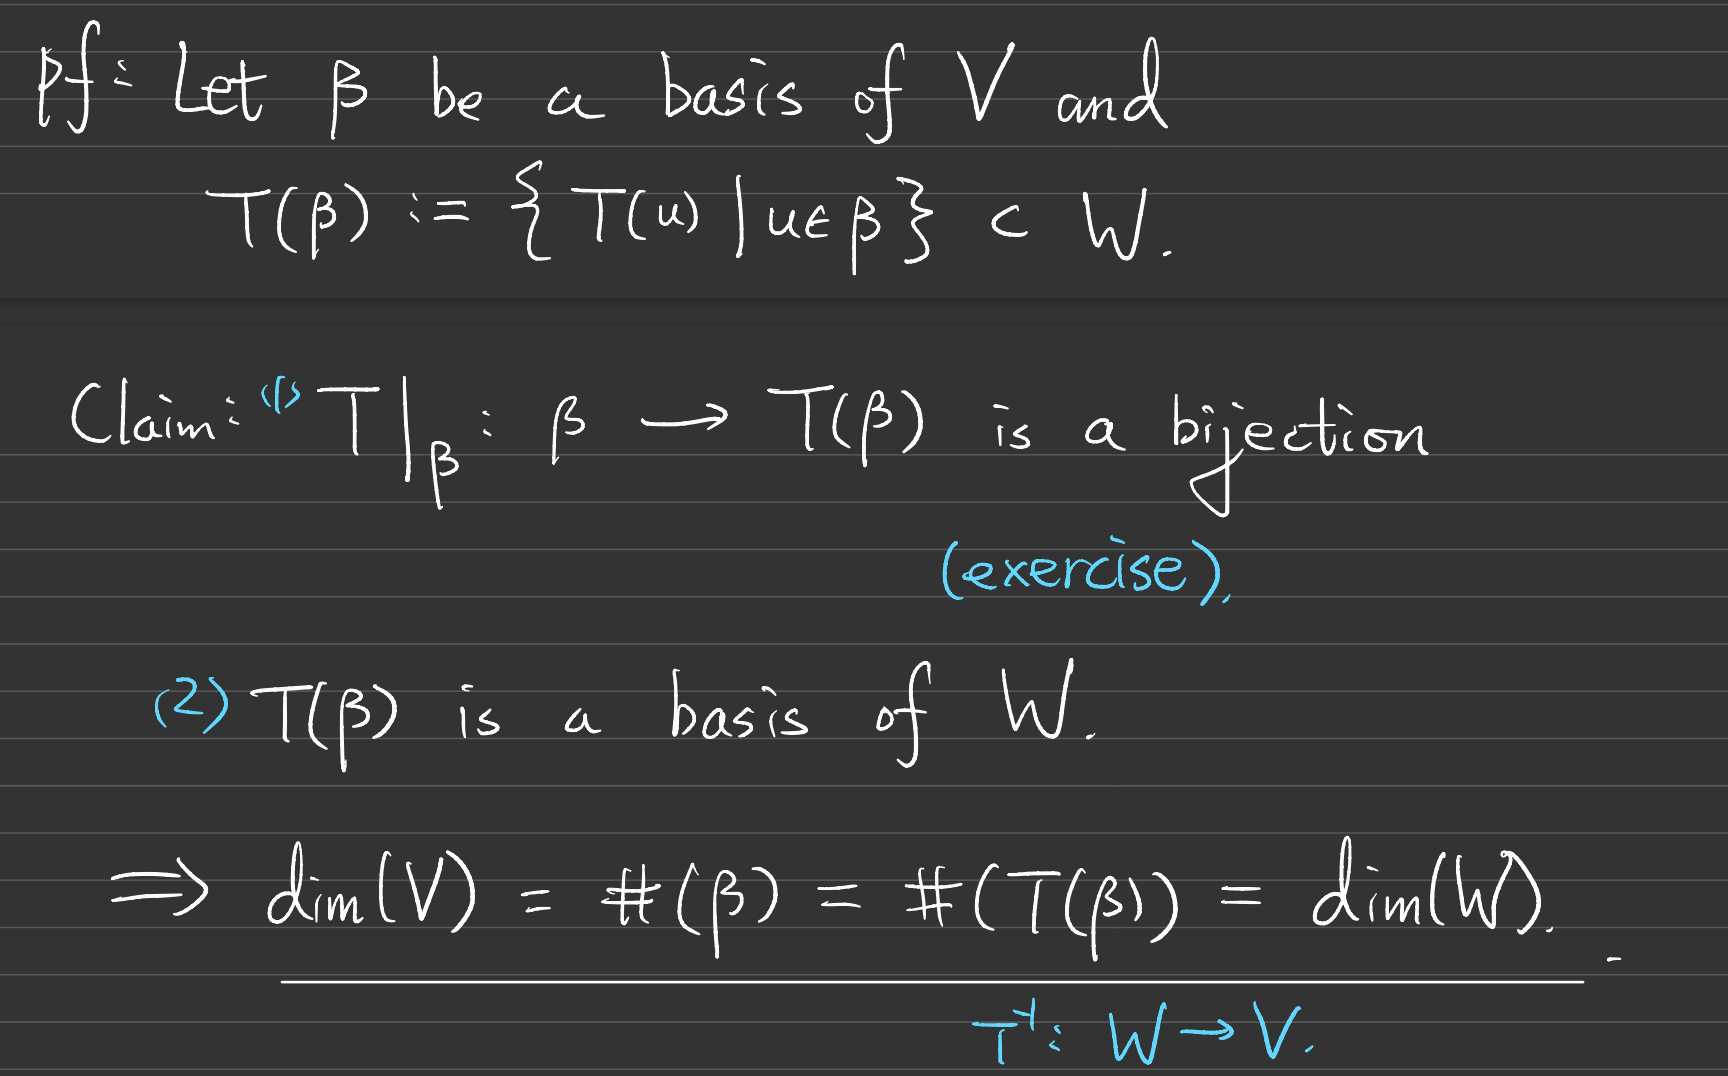 pf: Let β be a basis of V and
T(β) := { T(u) | u ∈ β } ⊂ W.
Claim: (1) T|_β : β → T(β) is a bijection
(exercise).
(2) T(β) is a basis of W.
⇒ dim(V) = #(β) = #(T(β)) = dim(W).
T⁻¹: W → V.